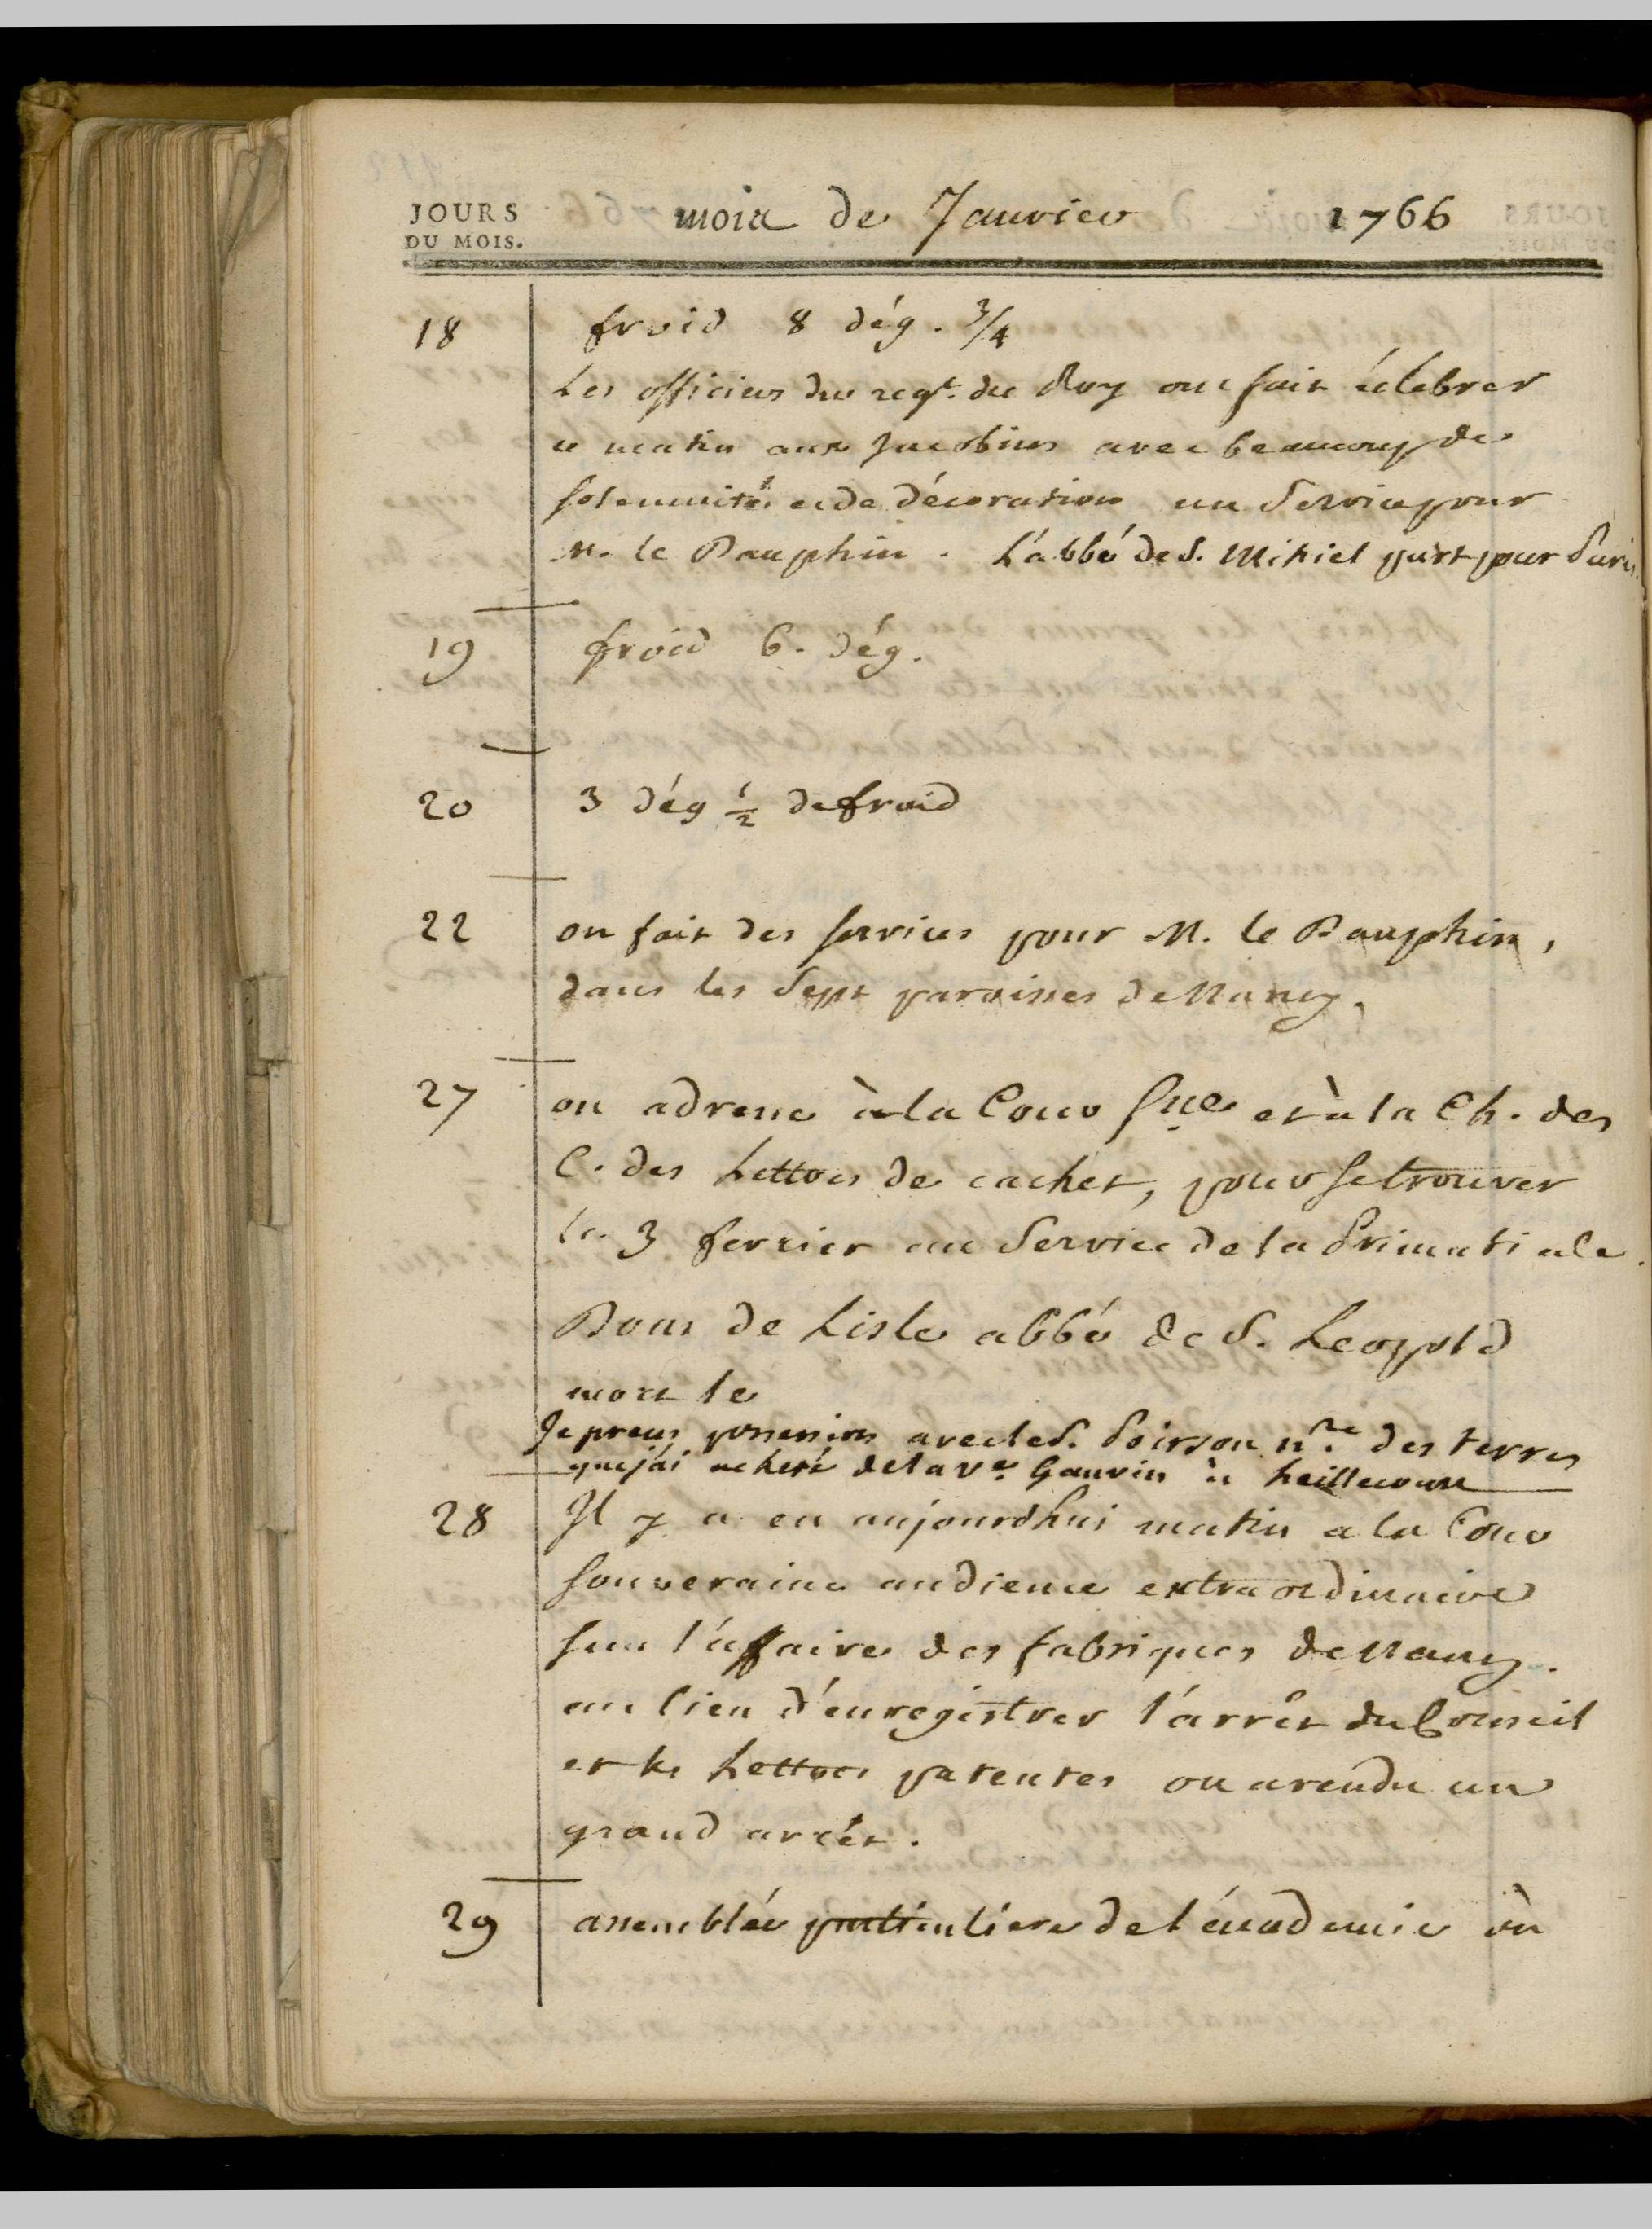 JOURS
DU MOIS.
mois de Janvier 1766
18 froid 8 dég. 3/4
Les officiers du regt. du Roy ont fait célebrer
ce matin aux Jacobins avec beaucoup de
solemnité et de décoration un service pour
M. le Dauphin. L'abbé de S. Mihiel part pour Paris.
19 froid 6. dég.
20 3 dég 1/2 de froid
22 on fait des services pour M. le Dauphin,
dans les sept paroisses de Nancy.
27 on adresse à la Cour Sne et à la Ch. des
C. des Lettres de cachet, pour se trouver
le 3 fevrier au Service de la Primatiale.
Dom de Lisle abbé de S. Leopold
mort le
Je prens possession avec le S. Poirson nre. des terres
que j'ai acheté de la ve. Gauvin à heillecourt
28 Il y a eu aujourdhui matin a la Cour
souveraine audience extraordinaire
sur l'affaire des fabriques de Nancy.
au lieu d'enregistrer l'arrêt du Conseil
et les Lettres patentes on a rendu un
grand arrêt.
29 assemblée particuliere de l'académie où